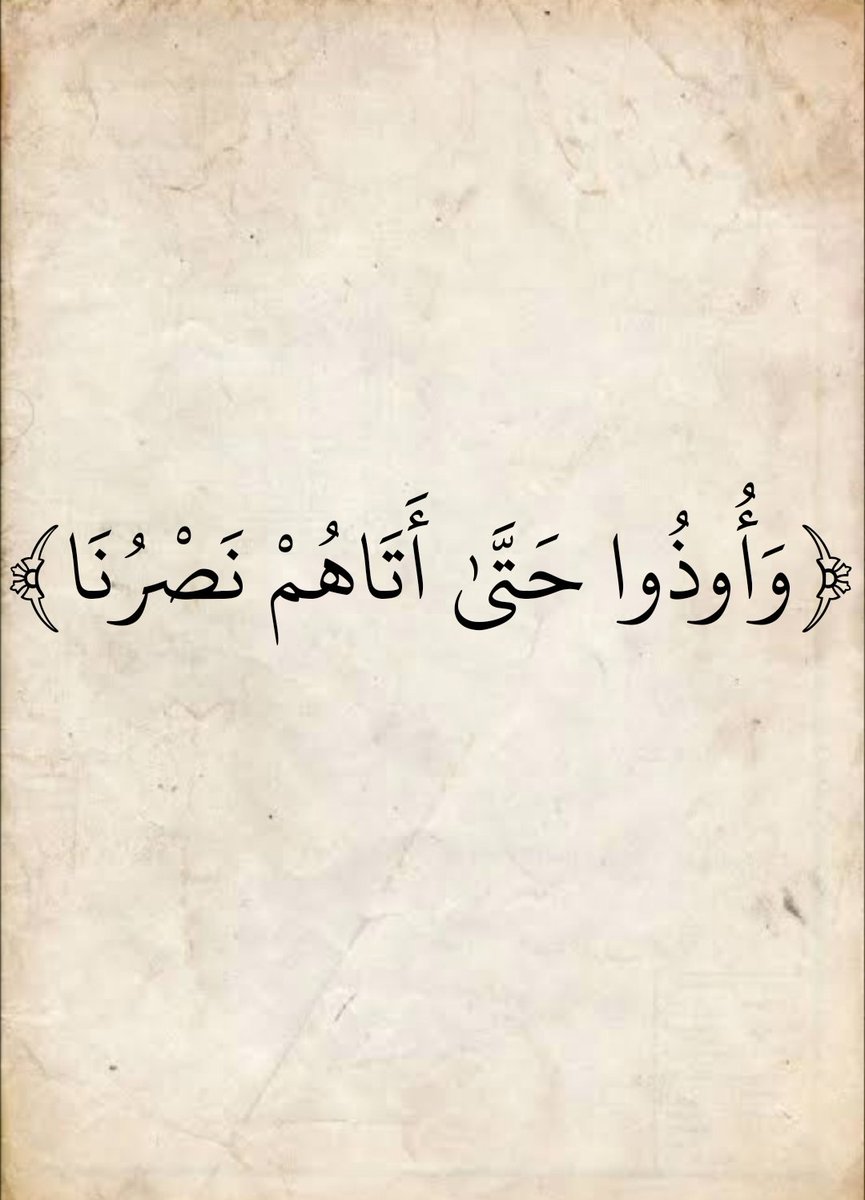 ﴿وَأُوذُوا حَتَّىٰ أَتَاهُمْ نَصْرُنَا﴾